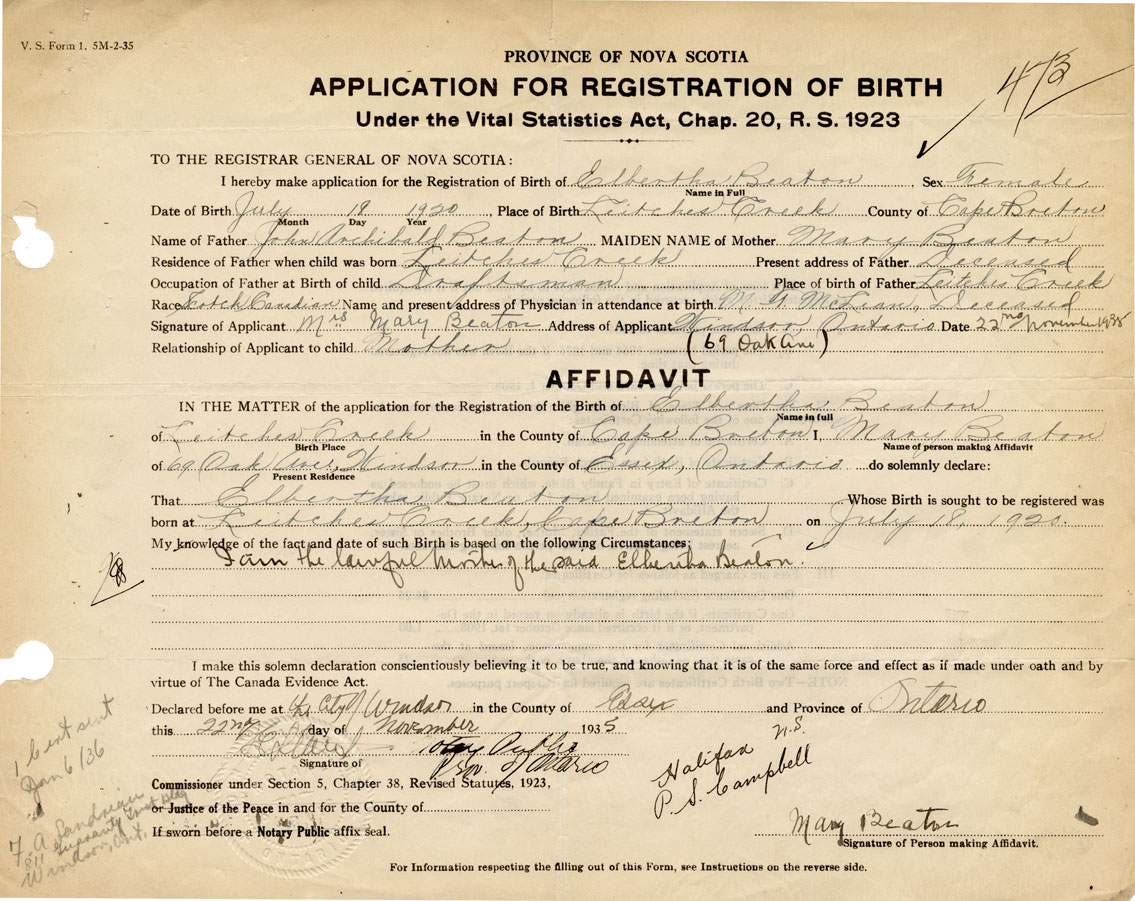 V. S. Form 1. 5M-2-35
PROVINCE OF NOVA SCOTIA
473
APPLICATION FOR REGISTRATION OF BIRTH
Under the Vital Statistics Act, Chap. 20, R. S. 1923
TO THE REGISTRAR GENERAL OF NOVA SCOTIA:
I hereby make application for the Registration of Birth of Elbertha Beaton Sex Female
Name in Full
Date of Birth July 19 1920, Place of Birth Leitches Creek County of Cape Breton
Month Day Year
Name of Father John Archibald Beaton MAIDEN NAME of Mother Mary Beaton
Residence of Father when child was born Leitches Creek Present address of Father Deceased
Occupation of Father at Birth of child Draftsman Place of birth of Father Leitches Creek
Race Scotch Canadian Name and present address of Physician in attendance at birth M. McLean, Deceased
Signature of Applicant Mrs Mary Beaton Address of Applicant Windsor, Ontario Date 22nd November 1935
Relationship of Applicant to child Mother (69 Oak Ave)
AFFIDAVIT
IN THE MATTER of the application for the Registration of the Birth of Elbertha Beaton
Name in full
of Leitches Creek in the County of Cape Breton I, Mary Beaton
Birth Place Name of person making Affidavit
of 69 Oak Ave., Windsor in the County of Essex, Ontario do solemnly declare:
Present Residence
That Elbertha Beaton Whose Birth is sought to be registered was
born at Leitches Creek, Cape Breton on July 18 1920.
My knowledge of the fact and date of such Birth is based on the following Circumstances:
I am the lawful Mother of the said Elbertha Beaton.
I make this solemn declaration conscientiously believing it to be true, and knowing that it is of the same force and effect as if made under oath and by
virtue of The Canada Evidence Act.
Declared before me at the City of Windsor in the County of Essex and Province of Ontario
this 22nd day of November 1935
Notary Public
Signature of Prov. of Ontario
Halifax N.S.
P. S. Campbell
Commissioner under Section 5, Chapter 38, Revised Statutes, 1923,
or Justice of the Peace in and for the County of
If sworn before a Notary Public affix seal.
Mary Beaton
Signature of Person making Affidavit.
For Information respecting the filling out of this Form, see Instructions on the reverse side.
1 Cert sent
Jan 6/36
Guaranty Trust Bldg
Windsor, Ont.